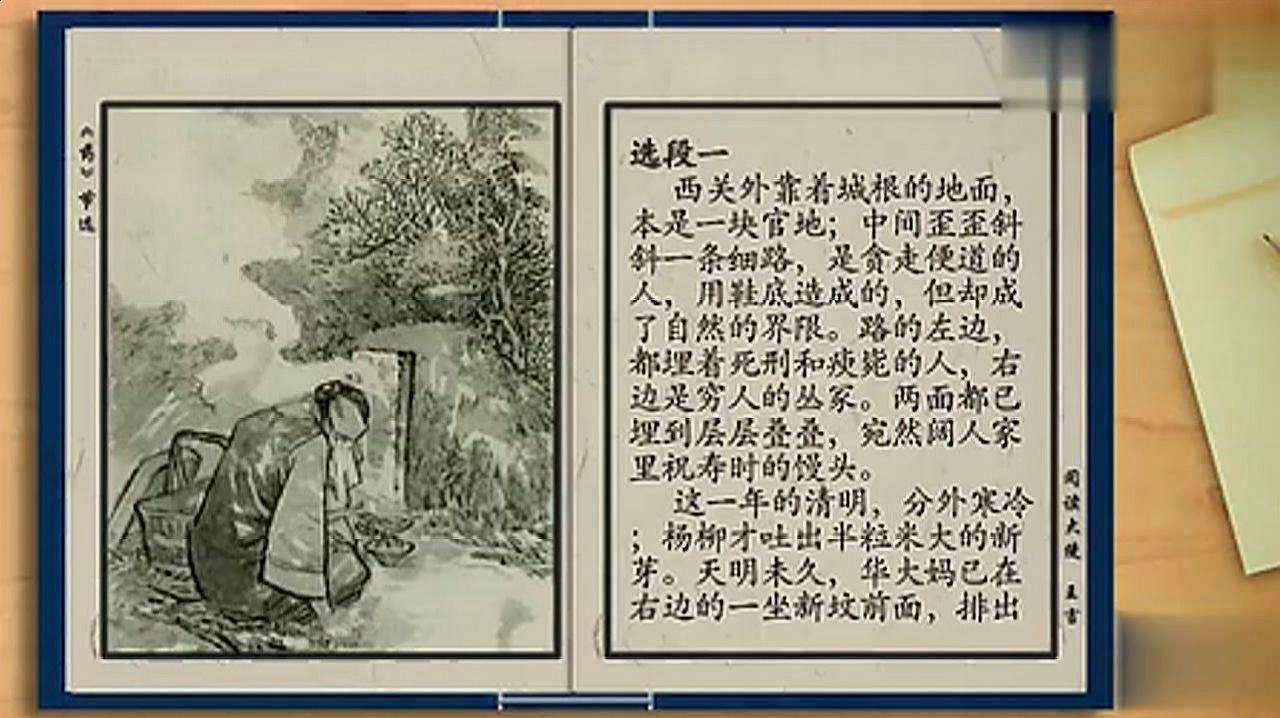 《药》节选
选段一
西关外靠着城根的地面，
本是一块官地；中间歪歪斜
斜一条细路，是贪走便道的
人，用鞋底造成的，但却成
了自然的界限。路的左边，
都埋着死刑和瘐毙的人，右
边是穷人的丛冢。两面都已
埋到层层叠叠，宛然阔人家
里祝寿时的馒头。
这一年的清明，分外寒冷
；杨柳才吐出半粒米大的新
芽。天明未久，华大妈已在
右边的一坐新坟前面，排出